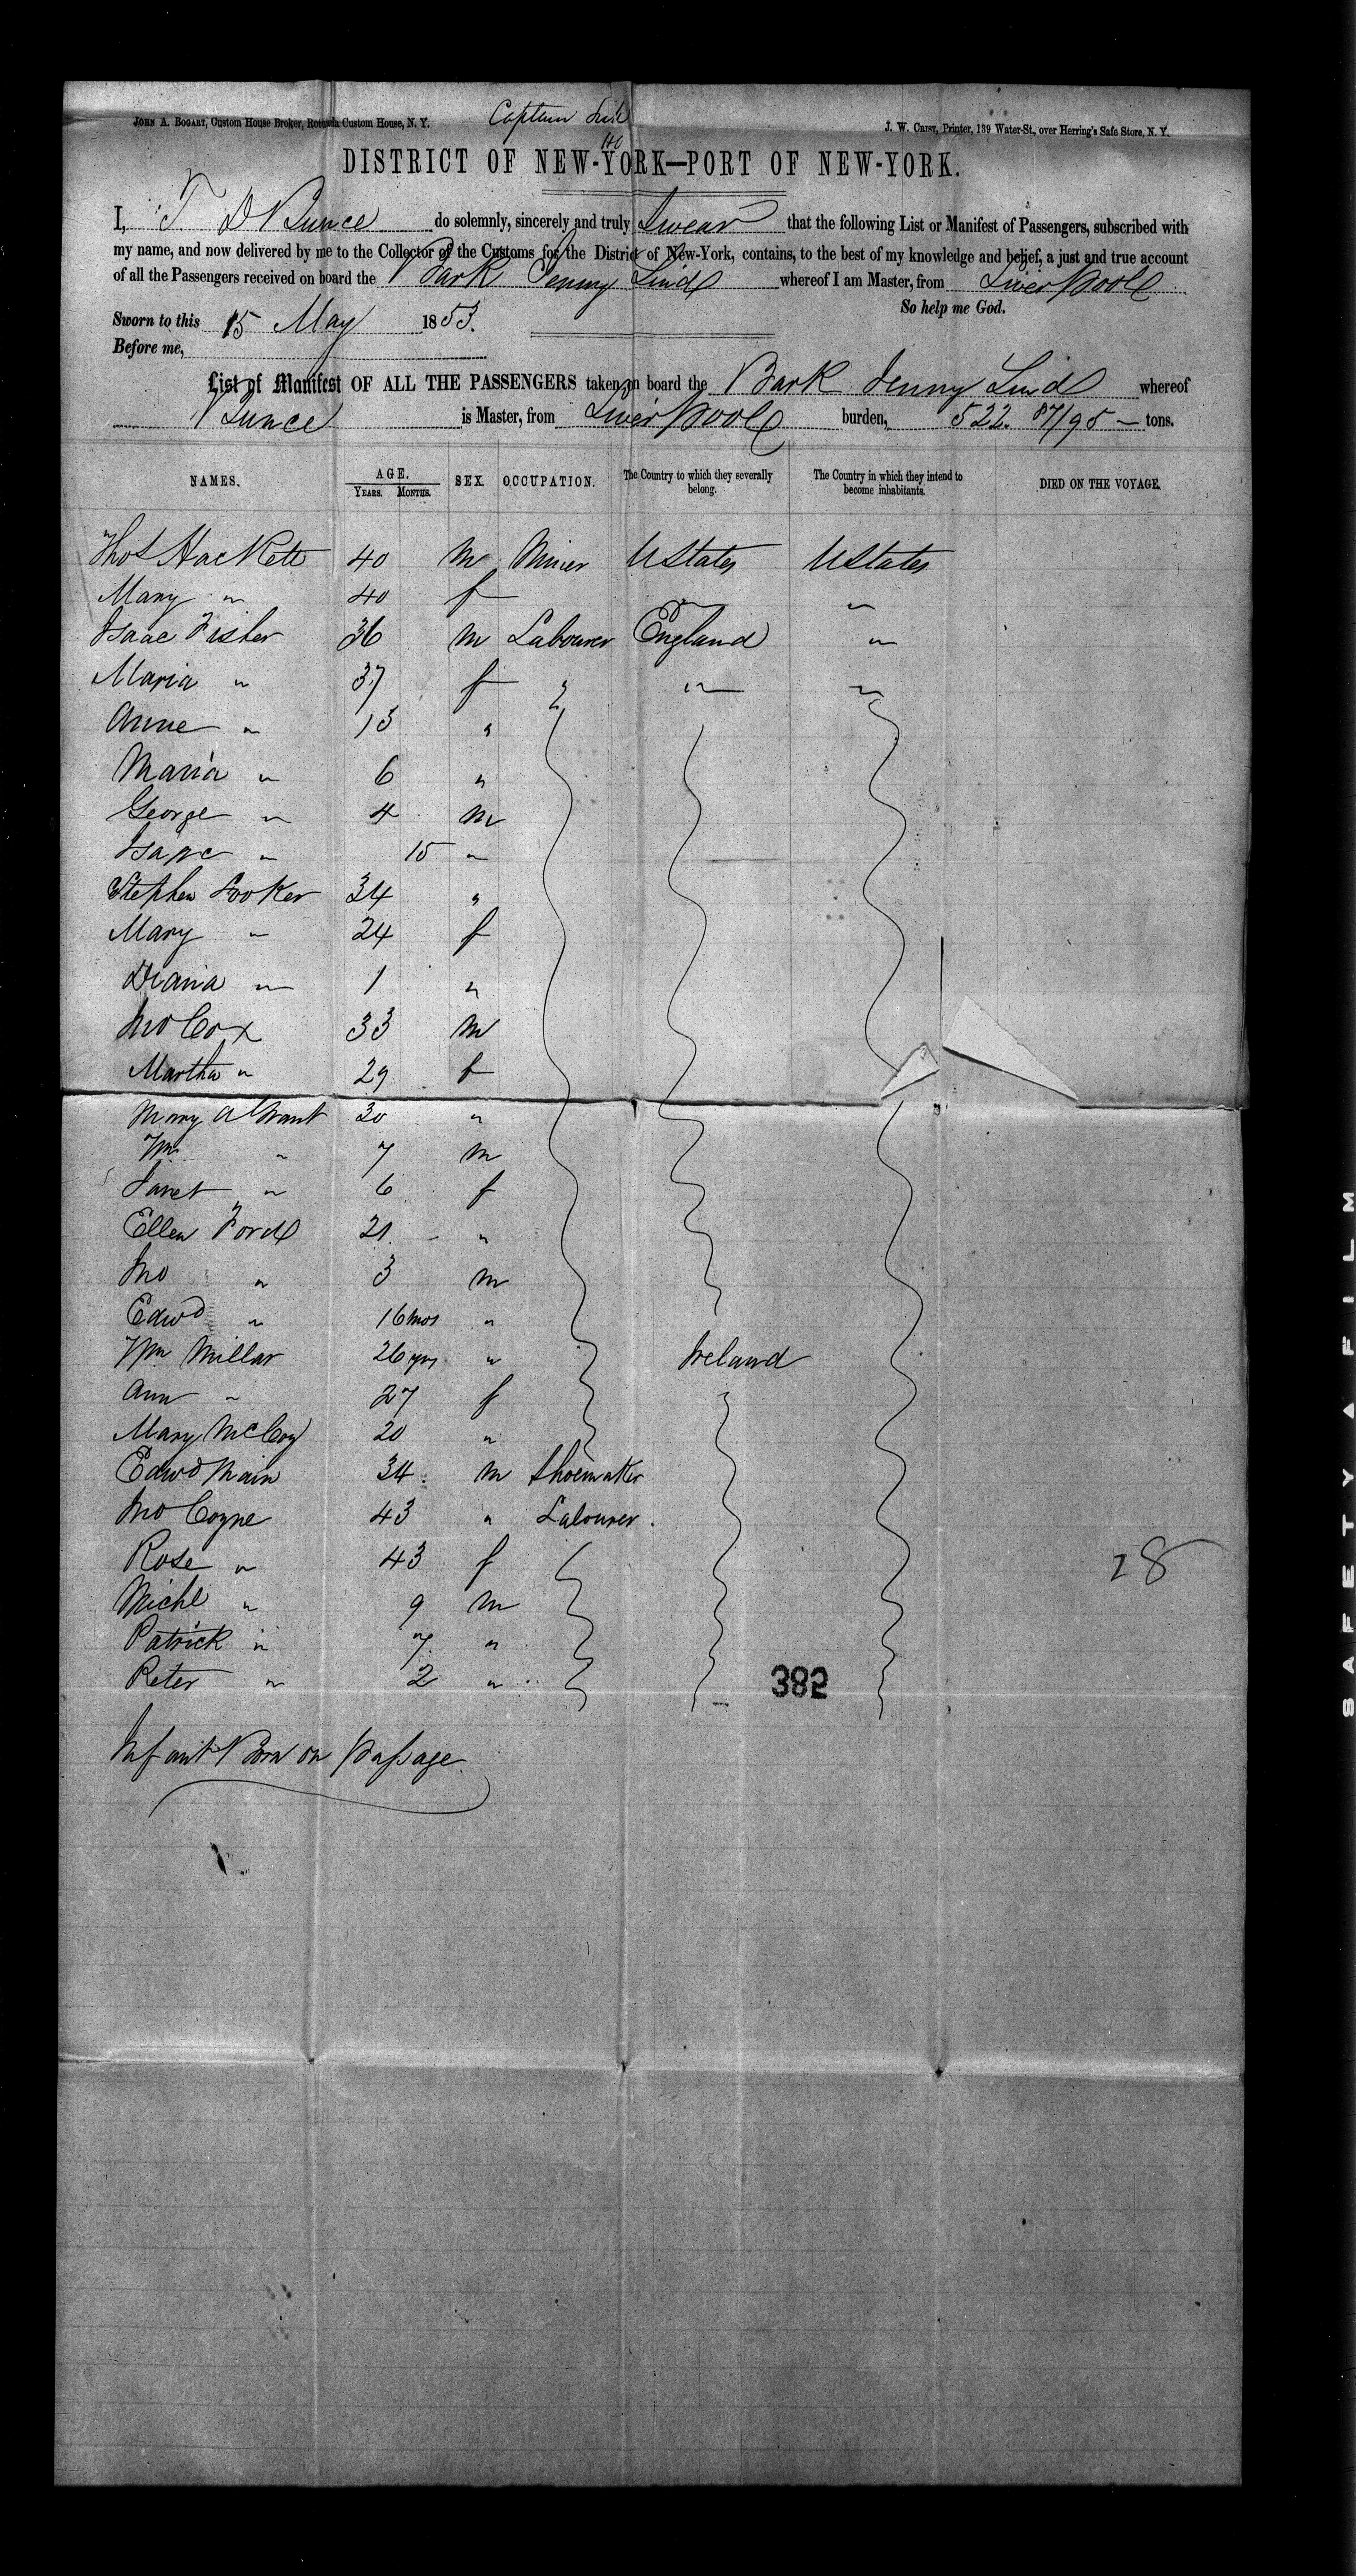 JOHN A. BOGART, Custom House Broker, Rotunda Custom House, N. Y.
Captain
J. W. CRIST, Printer, 139 Water-St., over Herring's Safe Store, N. Y.
DISTRICT OF NEW-YORK—PORT OF NEW-YORK.
I, T D Bunce do solemnly, sincerely and truly Swear that the following List or Manifest of Passengers, subscribed with
my name, and now delivered by me to the Collector of the Customs for the District of New-York, contains, to the best of my knowledge and belief, a just and true account
of all the Passengers received on board the Bark Jenny Lind whereof I am Master, from Liverpool
So help me God.
Sworn to this 15 May 1853.
Before me,
List of Manifest OF ALL THE PASSENGERS taken on board the Bark Jenny Lind whereof
Bunce is Master, from Liverpool burden, 522. 87/95 — tons.
NAMES. AGE. YEARS. MONTHS. SEX. OCCUPATION. The Country to which they severally belong. The Country in which they intend to become inhabitants. DIED ON THE VOYAGE.
Thos Hackett 40 m Miner UStates UStates
Mary " 40 f "
Isaac Fisher 36 m Labourer England "
Maria " 37 f " " "
Anne " 13 "
Maria " 6 "
George " 4 m
Isaac " 15 "
Stephen Hooker 34 "
Mary " 24 f
Diana " 1 "
Jno Cox 33 m
Martha " 29 f
Mary A Grant 30 "
Wm " 7 m
Janet " 6 f
Ellen Ford 21 "
Jno " 3 m
Edwd " 16 mos "
Wm Millar 26 yrs " Ireland
Ann " 27 f
Mary McCoy 20 "
Edwd Main 34 m Shoemaker
Jno Coyne 43 " Labourer.
Rose " 43 f
Michl " 9 m
Patrick " 7 "
Peter " 2 "
28
382
Infant Born on passage.
SAFETY FILM